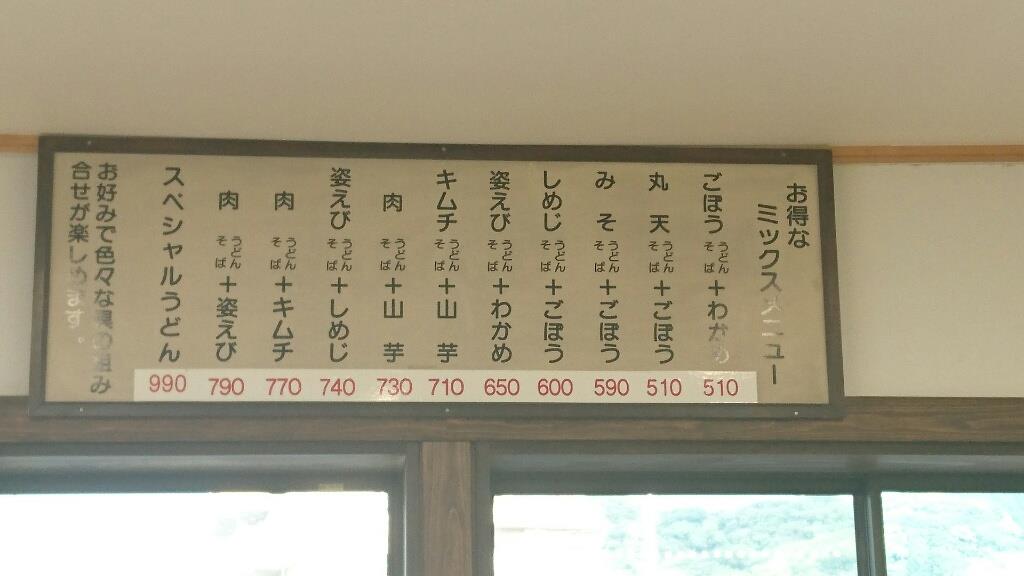 お得な
ミックスメニュー
ごぼう うどん そば +わかめ 510
丸天 うどん そば +ごぼう 510
みそ うどん そば +ごぼう 590
しめじ うどん そば +ごぼう 600
姿えび うどん そば +わかめ 650
キムチ うどん そば +山芋 710
肉 うどん そば +山芋 730
姿えび うどん そば +しめじ 740
肉 うどん そば +キムチ 770
肉 うどん そば +姿えび 790
スペシャルうどん 990
お好みで色々な具の組み
合せが楽しめます。